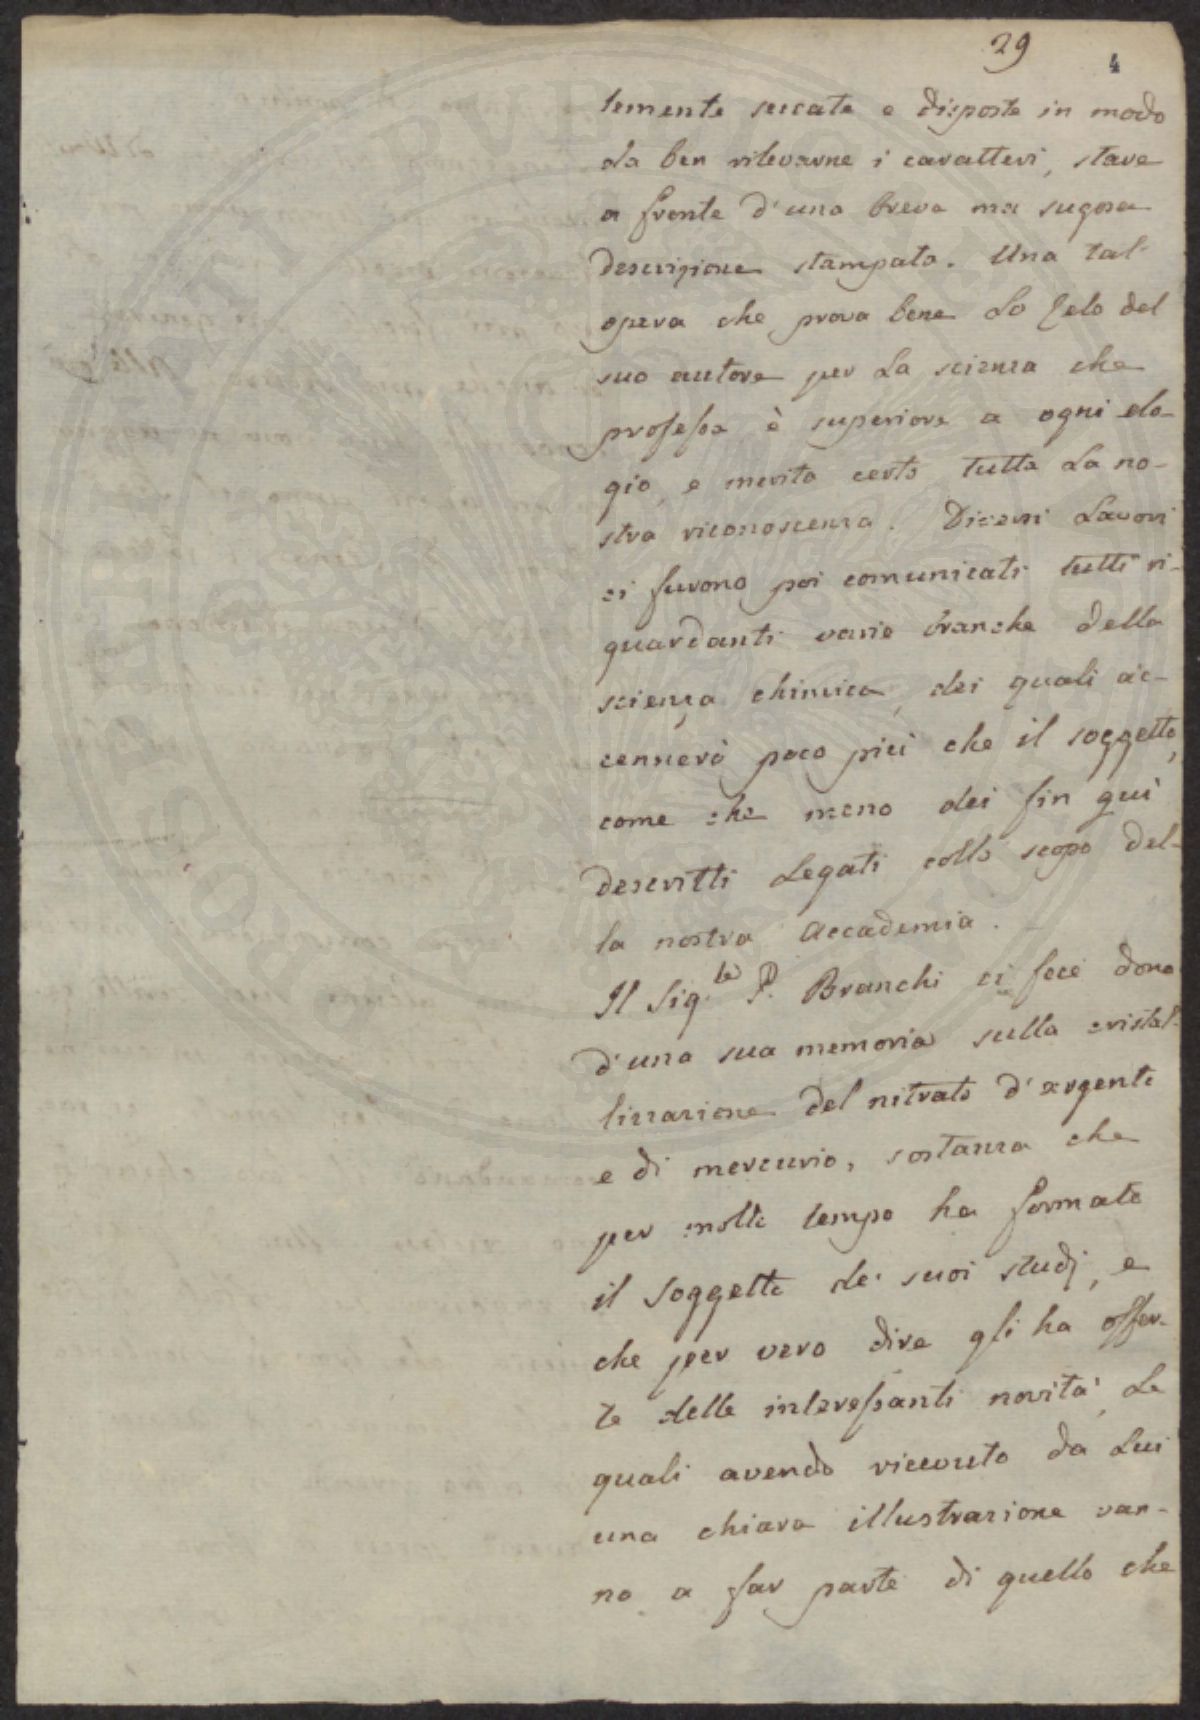 29
4
temente seccate e disposte in modo
da ben rilevarne i caratteri, stave
a fronte d'una breve ma sugosa
descrizione stampata. Una tal-
opera che prova bene Lo Zelo del
suo autore per La scienza che
professa è superiore a ogni elo-
gio, e merita certo tutta La no-
stra riconoscenza. Diversi Lavori
ci furono poi comunicati tutti ri-
guardanti varie branche della
scienza chimica, dei quali ac-
cennerò poco più che il soggetto,
come che meno dei fin quì
descritti Legati collo scopo del-
la nostra Accademia.
Il Sig.le P. Branchi ci fece dono
d'una sua memoria sulla cristal-
lizzazione del nitrato d'argento
e di mercurio, sostanza che
per molto tempo ha formato
il soggetto de' suoi studj, e
che per vero dire gli ha offer-
te delle interessanti novità, Le
quali avendo ricevuto da Lui
una chiara illustrazione van-
no a far parte di quello che